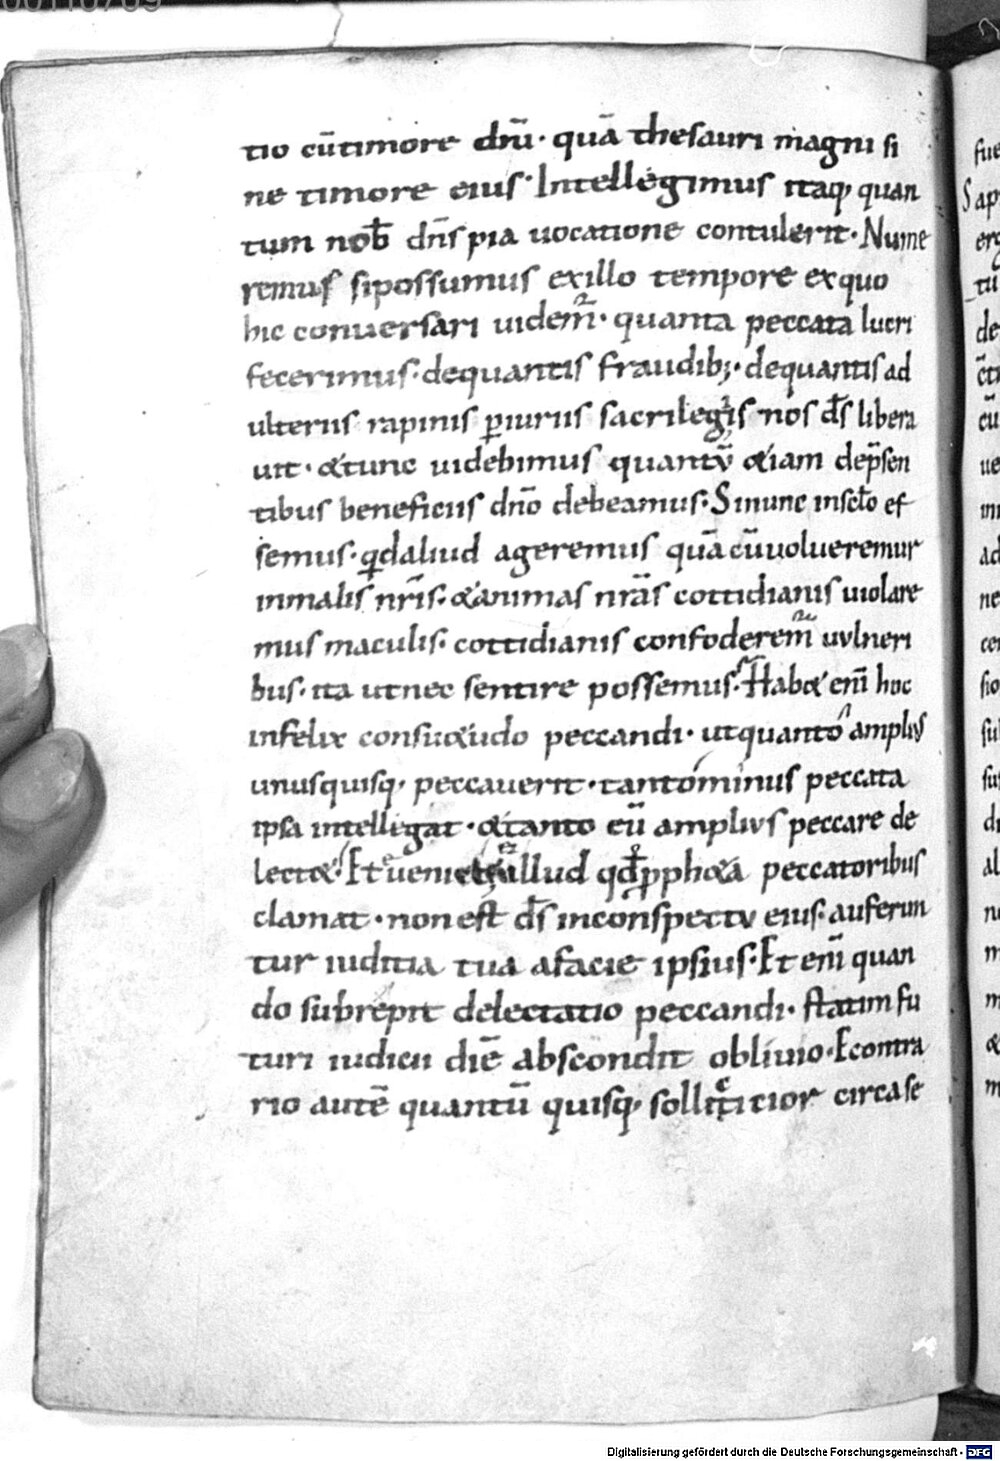 tio cū timore dn̄i · quā thesauri magni si
ne timore eius · Intellegimus itaq; quan
tum nob̄ dn̄s pia uocatione contulerit · Nume
remus si possumus ex illo tempore ex quo
hic conuersari uidem̄ · quanta peccata lucri
fecerimus · de quantis fraudib; · de quantis ad
ulteriis rapinis ꝑiuriis sacrilegiis nos d̄s libera
uit · & tunc uidebimus quantū & iam de p̄sen
tibus beneficiis dn̄o debeamus · Si nunc in sc̄lo es
semus · qd aliud ageremus quā cū uolueremur
in malis nr̄is · & animas nr̄as cottidianis uiolare
mus maculis · cottidianis confoderem̄ uulneri
bus · ita ut nec sentire possemus · Hab& eni̅ hoc
infelix consu&udo peccandi · ut quanto amplius
unusquisq; peccauerit · tanto minus peccata
ipsa intellegat · & tanto eū amplius peccare de
lect& · Et ueniet illud qd ꝓph&a peccatoribus
clamat · non est d̄s in conspectu eius · auferun
tur iuditia tua a facie ipsius · Et eni̅ quan
do subrepit delectatio peccandi · statim fu
turi iudicii diē abscondit obliuio · E contra
rio autē quantū quisq; sollicitior circa se
Digitalisierung gefördert durch die Deutsche Forschungsgemeinschaft - DFG